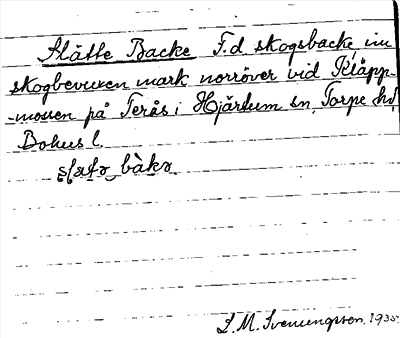 Slätte Backe F.d. skogsbacke inu
skogbevuxen mark norröver vid Kläpp-
-mossen på Terås i Hjärtum sn, Torpe hd,
Bohus l.
L. M. Svenungsson. 1935.